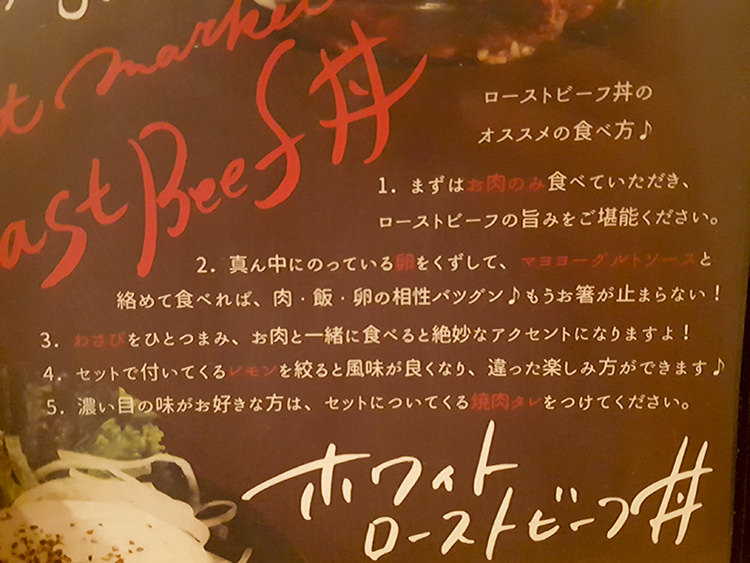 market
Beef丼
ローストビーフ丼の
オススメの食べ方♪
1. まずはお肉のみ食べていただき、
ローストビーフの旨みをご堪能ください。
2. 真ん中にのっている卵をくずして、マヨヨーグルトソースと
絡めて食べれば、肉・飯・卵の相性バツグン♪もうお箸が止まらない！
3. わさびをひとつまみ、お肉と一緒に食べると絶妙なアクセントになりますよ！
4. セットで付いてくるレモンを絞ると風味が良くなり、違った楽しみ方ができます♪
5. 濃い目の味がお好きな方は、セットについてくる焼肉タレをつけてください。
ホワイト
ローストビーフ丼